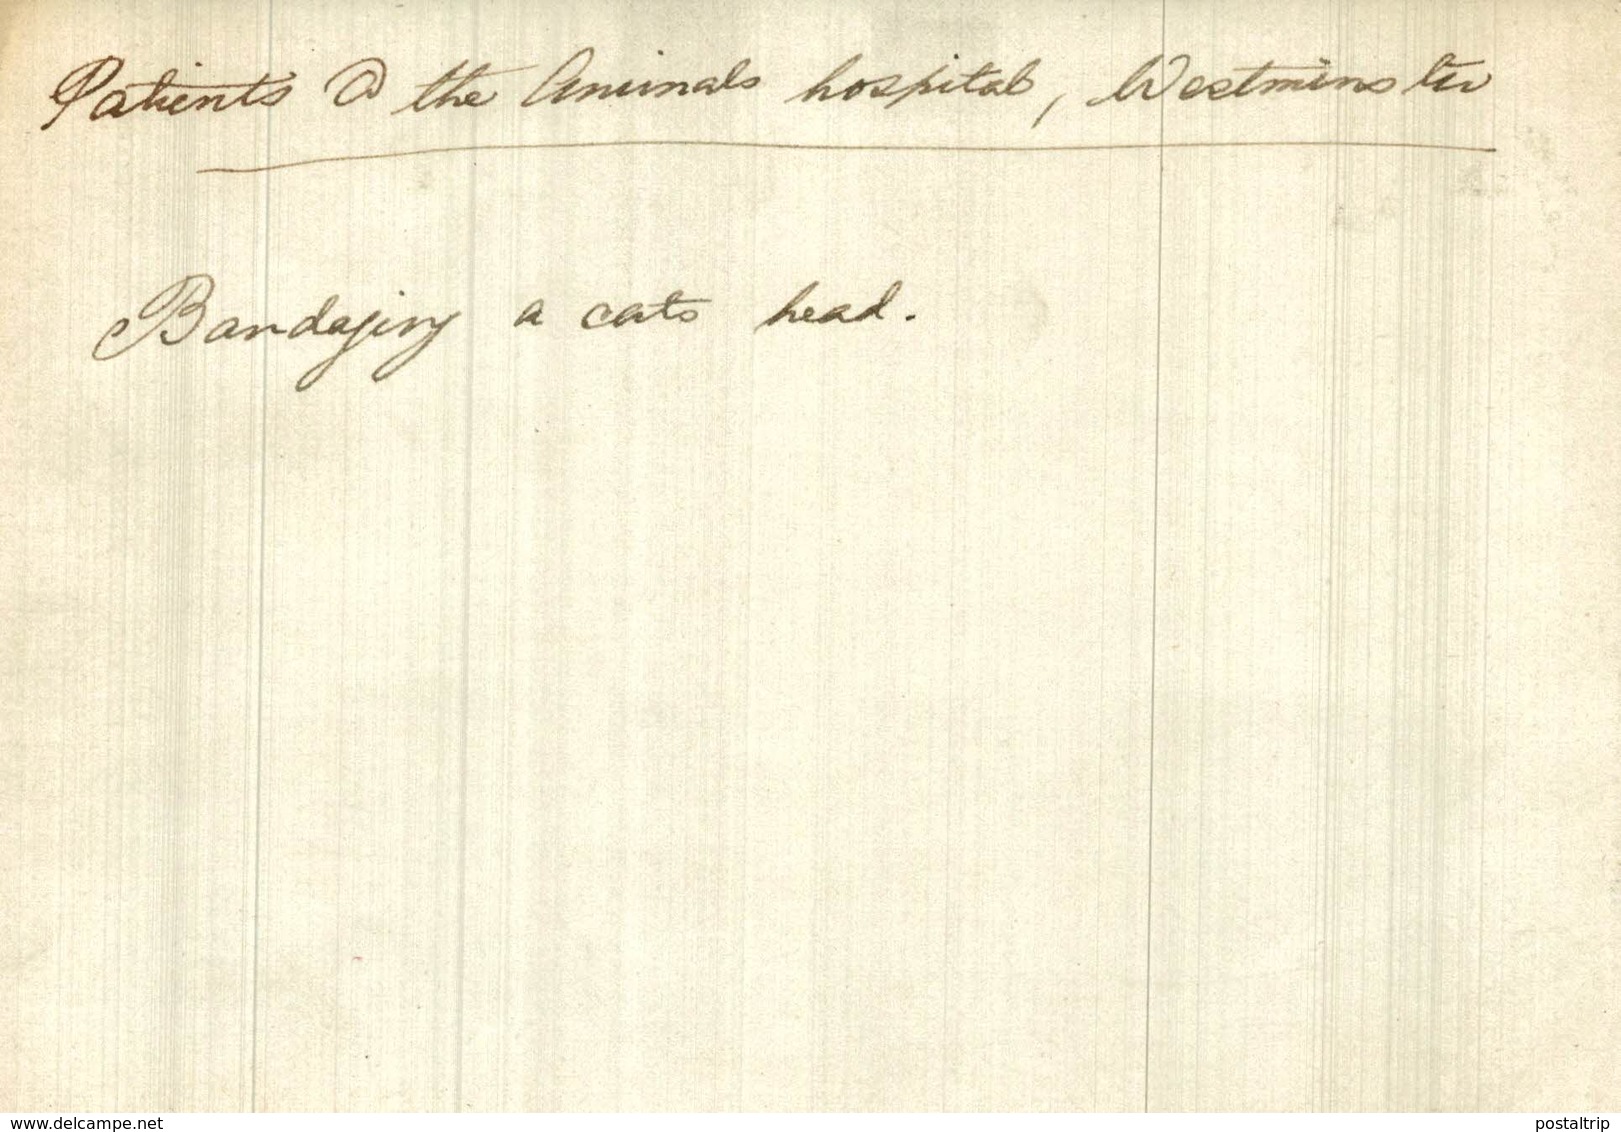 Patients @ the Animals hospital, Westminster
Bandaging a cats head.
www.delcampe.net
postaltrip